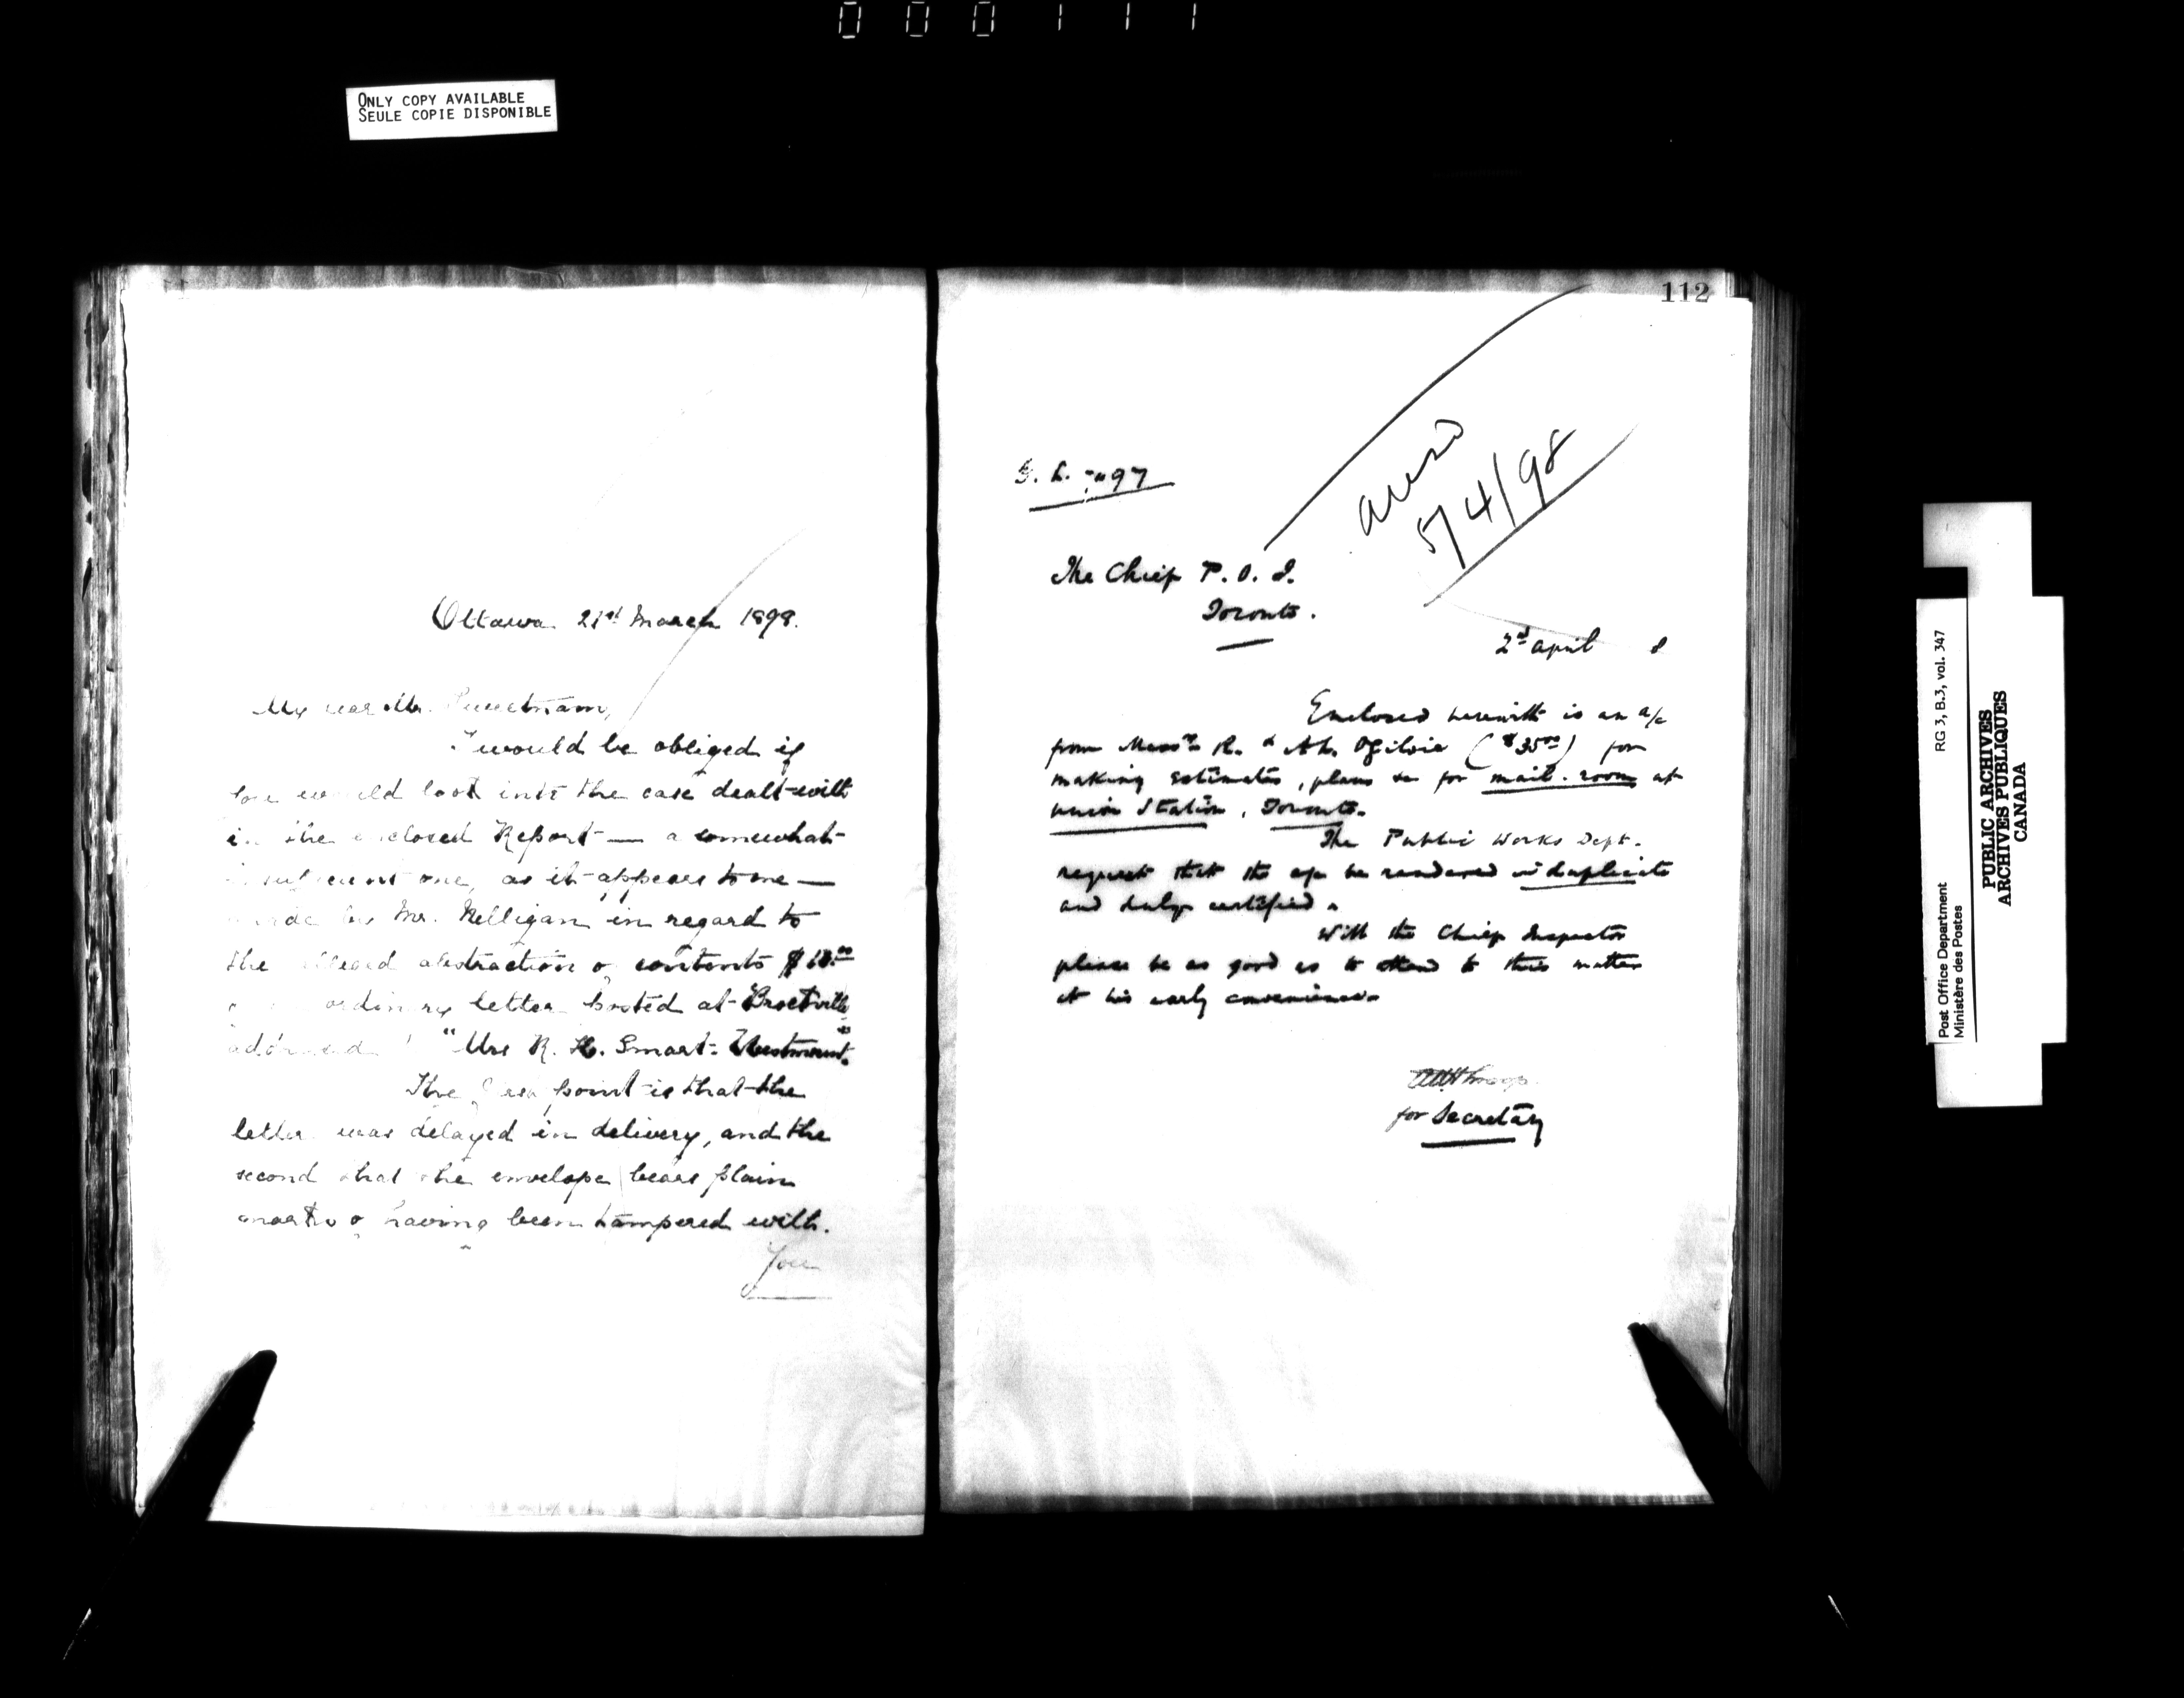 000111
ONLY COPY AVAILABLE
SEULE COPIE DISPONIBLE
Ottawa 21st March 1898.
My dear Mr.
I would be obliged if
you would look into the case dealt with
in the enclosed Report — a somewhat
one, as it appears to me —
made by Mr. Nelligan in regard to
the alleged abstraction of contents
ordinary letter posted at Brockville
addressed "Mrs R. H. Smart. Westmount."
The point is that the
letter was delayed in delivery, and the
second that the envelope bears plain
marks of having been tampered with.
You
112
5/4/98
The Chief P. O. I.
Toronto.
2nd April 8
Enclosed herewith is an a/c
from Messrs R. & A. Ogilvie ($35.00) for
making estimates, plans &c for mail-room at
Union Station, Toronto.
The Public Works Dept.
request that the a/c be rendered in duplicate
and duly certified.
Will the Chief Inspector
please be as good as to attend to this matter
at his early convenience.
for Secretary
Post Office Department
Ministère des Postes
RG 3, B.3, vol. 347
PUBLIC ARCHIVES
ARCHIVES PUBLIQUES
CANADA